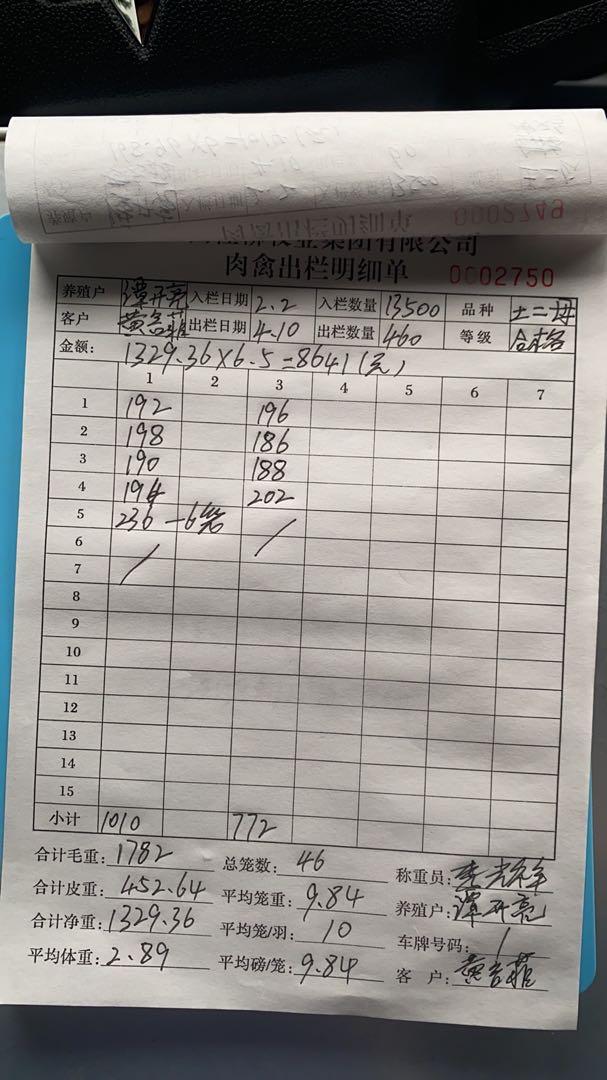 0002749
牧业集团有限公司
肉禽出栏明细单 0002750
养殖户 谭开亮 入栏日期 2.2 入栏数量 13500 品种 土二母
客户 出栏日期 4.10 出栏数量 460 等级 合格
金额: 1329.36×6.5=8641(元)
1 2 3 4 5 6 7
1 192 196
2 198 186
3 190 188
4 194 202
5 236 -6笼
6
7
8
9
10
11
12
13
14
15
小计 1010 772
合计毛重: 1782 总笼数: 46 称重员:
合计皮重: 452.64 平均笼重: 9.84 养殖户: 谭开亮
合计净重: 1329.36 平均笼/羽: 10 车牌号码: 1
平均体重: 2.89 平均磅/笼: 9.84 客 户: